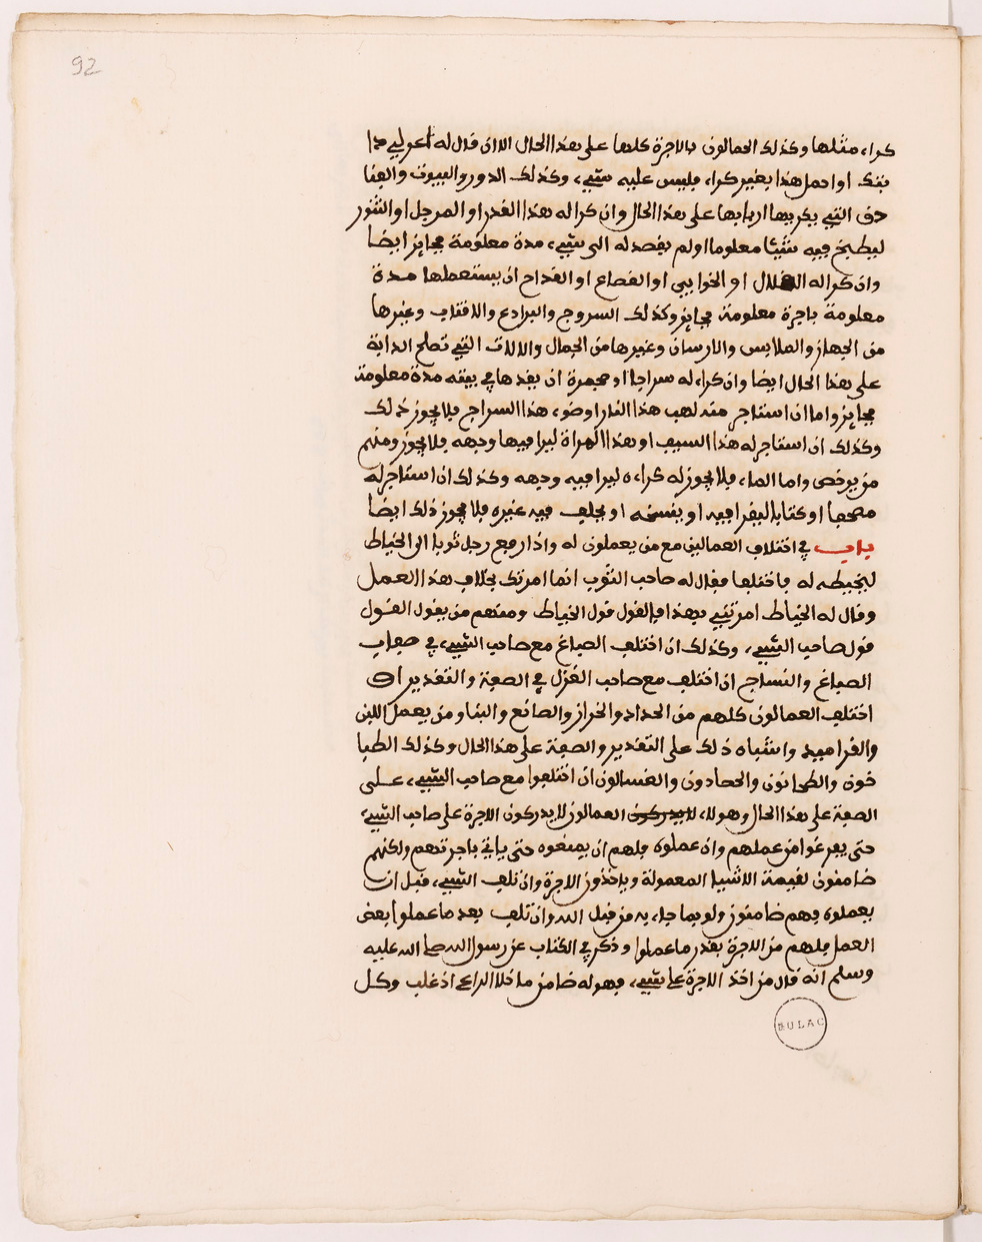 92
كراء مثلها وكذلك الحمالون بالاجرة كلها على هذا الحال الا ان قال له اعر لي دا
بتك او احمل هذا بغير كراء فليس عليه شيء، وكذلك الدور والبيوت والفنا
دق التي يكريها اربابها على هذا الحال وان كرا له هذا القدر او المرجل او التنور
ليطبخ فيه شيئا معلوما او لم يقصد له الى شيء، مدة معلومة فجايز ايضا
وان كرا له القلال او الخوابي او القصاع او القداح ان يستعملها مدة
معلومة باجرة معلومة فجايز وكذلك السروج والبرادع والاقتاب وغيرها
من الجهاز والملابس والارسان وغيرها من الحبال والالات التي تصلح الدابة
على هذا الحال ايضا وان كراء له سراجا او مجمرة ان يقدها في بيته مدة معلومة
فجايز واما ان استاجر منه لهب هذا النار او ضوء هذا السراج فلا يجوز ذلك
وكذلك ان استاجر له هذا السيف او هذا المراة ليرا فيها وجهه فلا يجوز ومنهم
من يرخص واما الماء، فلا يجوز له كراءه ليرا فيه وجهه وكذلك ان استاجر له
مصحفا او كتابا ليقرا فيه او ينسخه او يحلف فيه غيره فلا يجوز ذلك ايضا
باب في اختلاف العمالين مع من يعملون له واذا رفع رجل ثوبا الى الخياط
ليخيطه له فاختلفا فقال له صاحب الثوب انما امرتك بخلاف هذا العمل
وقال له الخياط امرتني بهذا فالقول قول الخياط ومنهم من يقول القول
قول صاحب الشيء، وكذلك ان اختلف الصباغ مع صاحب الشيء، في صفات
الصباغ والنساج ان اختلف مع صاحب الغزل في الصفة والتقدير او
اختلف العمالون كلهم من الحداد والخراز والصانع والبنا ومن يعمل اللبن
والقراميد واشباه ذلك على التقدير والصفة على هذا الحال وكذلك الطبا
خون والطحانون والحصادون والغسالون ان اختلفوا مع صاحب الشيء، على
الصفة على هذا الحال وهولاء، لا يدركون العمالون لا يدركون الاجرة على صاحب الشيء،
حتى يفرغوا من عملهم وان عملوه فلهم ان يمنعوه حتى ياتي باجرتهم ولكنهم
ضامنون لقيمة الاشيا المعمولة وياخذون الاجرة وان تلف الشيء، قبل ان
يعملوه فهم ضامنون ولو بما جاء، به من قبل الله وان تلف بعد ما عملوا بعض
العمل فلهم من الاجرة بقدر ما عملوا وذكر في الكتاب عن رسول الله صلى الله عليه
وسلم انه قال من اخذ الاجرة على شيء، فهو له ضامن ما خلا الراعي اذ غلب وكل
BULAC